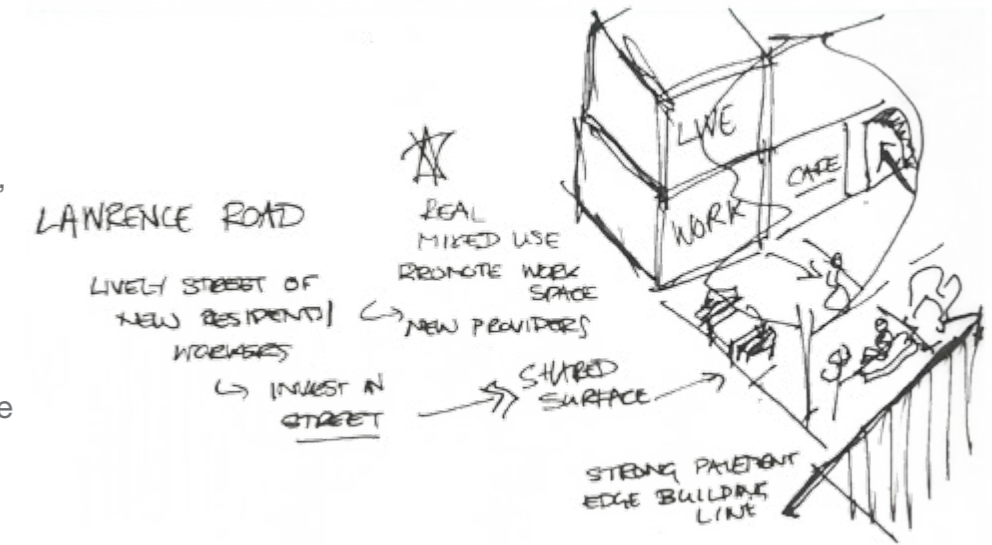 LAWRENCE ROAD
LIVELY STREET OF
NEW RESIDENTS/
WORKERS
↳ INVEST IN
STREET
REAL
MIXED USE
PROMOTE WORK
SPACE
↳ NEW PROVIDERS
SHARED
SURFACE
LIVE
WORK
CAFE
STRONG PAVEMENT
EDGE BUILDING
LINE